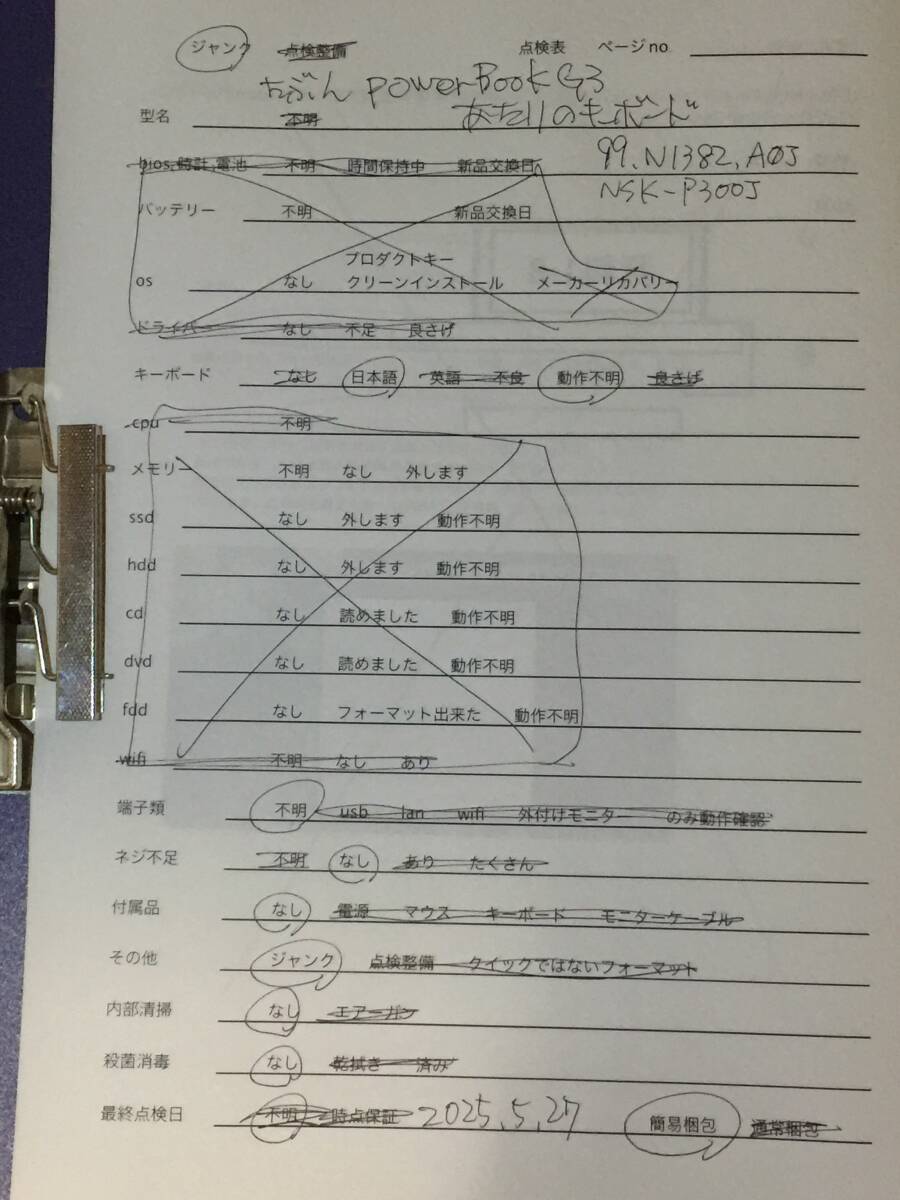 ジャンク 点検整備 点検表 ページno
たぶん PowerBook G3
型名 不明 あたりのキーボード
bios,時計,電池 不明 時間保持中 新品交換日 99.N1382.A0J
NSK-P300J
バッテリー 不明 新品交換日
プロダクトキー
os なし クリーンインストール メーカーリカバリー
ドライバー なし 不足 良さげ
キーボード なし 日本語 英語 不良 動作不明 良さげ
cpu 不明
メモリー 不明 なし 外します
ssd なし 外します 動作不明
hdd なし 外します 動作不明
cd なし 読めました 動作不明
dvd なし 読めました 動作不明
fdd なし フォーマット出来た 動作不明
wifi 不明 なし あり
端子類 不明 usb lan wifi 外付けモニター のみ動作確認
ネジ不足 不明 なし あり たくさん
付属品 なし 電源 マウス キーボード モニターケーブル
その他 ジャンク 点検整備 クイックではないフォーマット
内部清掃 なし エアーガン
殺菌消毒 なし 乾拭き 済み
最終点検日 不明 時点保証 2025.5.27 簡易梱包 通常梱包